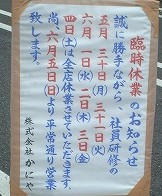 臨時休業のお知らせ
誠に勝手ながら、社員研修の為
五月三十日(月)三十一日(火)
六月一日(水)二日(木)三日(金)
四日(土)は全店休業させていただきます。
尚六月五日(日)より平常通り営業
致します。
株式会社かにや